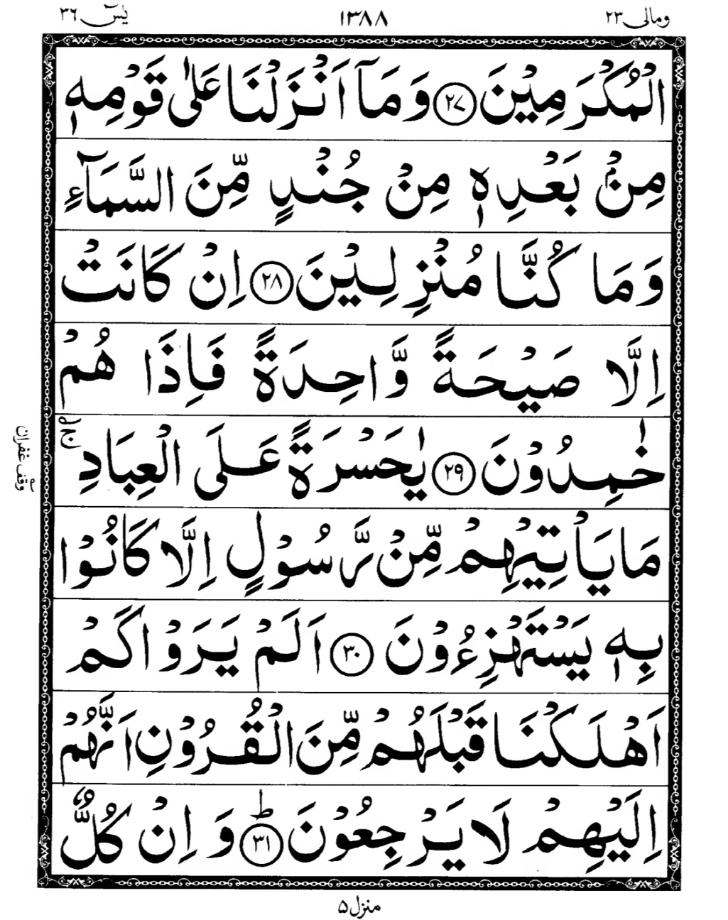 ومالی ۲۳ ۱۳۸۸ یٰسٓ ۳۶
الْمُكْرَمِيْنَ ۝۲۷ وَمَاۤ اَنْزَلْنَا عَلٰى قَوْمِهٖ
مِنْۢ بَعْدِهٖ مِنْ جُنْدٍ مِّنَ السَّمَآءِ
وَمَا كُنَّا مُنْزِلِيْنَ ۝۲۸ اِنْ كَانَتْ
اِلَّا صَيْحَةً وَّاحِدَةً فَاِذَا هُمْ
خٰمِدُوْنَ ۝۲۹ يٰحَسْرَةً عَلَى الْعِبَادِ ۚ
وقف غفران
مَا يَاْتِيْهِمْ مِّنْ رَّسُوْلٍ اِلَّا كَانُوْا
بِهٖ يَسْتَهْزِءُوْنَ ۝۳۰ اَلَمْ يَرَوْا كَمْ
اَهْلَكْنَا قَبْلَهُمْ مِّنَ الْقُرُوْنِ اَنَّهُمْ
اِلَيْهِمْ لَا يَرْجِعُوْنَ ؕ۝۳۱ وَ اِنْ كُلٌّ
منزل ۵